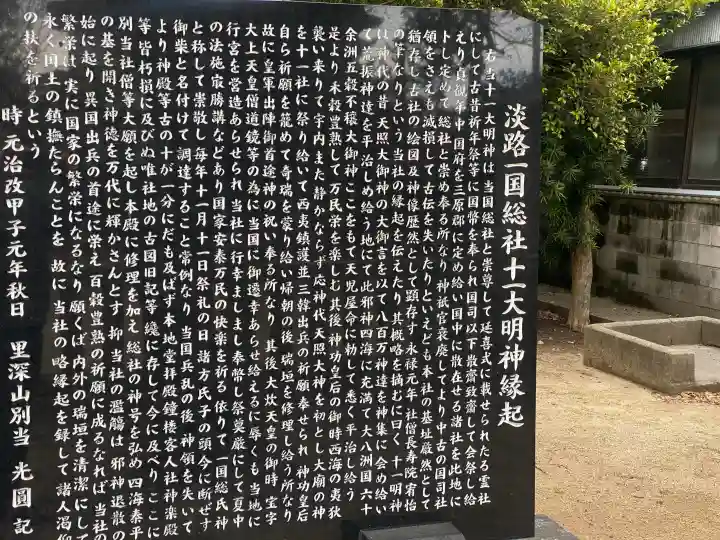 淡路一国総社十一大明神縁起
右当十一大明神は当国総社と崇尊して延喜式に載せられたる霊社
にして古昔祈年祭等に国幣を奉られ国司以下散齋致齋して会祭し給
えり貞観年中国府を三原郡に定め給い国中に散在せる諸社を此地に
卜し定めて総社と崇め奉る所なり神祇官衰廃してより中古の国司社
領をさえも減損して古伝を失いたりといえども本社の基址厳然として
猶存し古社の絵図及神像歴然として顕存す永禄元年社僧長寿院宥怡
の筆なりという当社の縁起を伝えたり其概略を摘むに曰く十一明神
は神代の昔天照大御神の大御言を以て八百万神達を神集に会め給い
て荒振神達を平治しめ給う地にて此邪神四海に充満て大八洲国六十
余洲五穀不穣大御神ここをもて天児屋命に勅して悉く平治し給う
是より禾穀豊熟して万民栄を楽しむ其後神功皇后の御時西海の夷狄
襲い来りて宇内また静かならず応神代天照大神を初とし大廟の神
を十一社に祭り給いて西夷鎮護並三韓出兵の祈願奉せられ神功皇后
自ら祈願を籠めて奇瑞を蒙り給い帰朝の後瑞垣を修理し給う所なり
故に皇軍出陣御首途神の祝い奉る所なり其後大炊天皇の御時宝字
大上天皇僧道鏡等の為に当国に御遷幸あらせ給えるに辱くも当地に
行宮を営造あらせられ当社に行幸ましまし奉幣し祭奠厳にして夏中
の法施最勝講などあり国家安泰万民の快楽を祈る依りて一国総氏神
と称して崇敬し毎年十一月十一日祭礼の日諸方氏子の頭今に断ぜす
御柴と名付けて調達すること常例なり当国兵乱の後神領を失いて
より神殿等古の十が一分にだも及ばず本地堂拝殿鐘楼客人社神楽殿
等皆朽損に及びぬ唯社地の古図旧記等纔に存して今に及べりここに
別当社僧等大願を起し本殿に修理を加え総社の神号を弘め四海泰平
の基を開き神徳を万代に輝かさんとす抑当社の濫觴は邪神退散の
始に起り異国出兵の首途に栄え百穀豊熟の祈願に成るなれば当社の
繁栄は実に国家の繁栄になるなり願くば内外の瑞垣を清潔にして
永く国土の鎮撫たらんことを故に当社の略縁起を録して諸人渇仰
の扶を祈るという
時元治改甲子元年秋日 里深山別当 光圓記